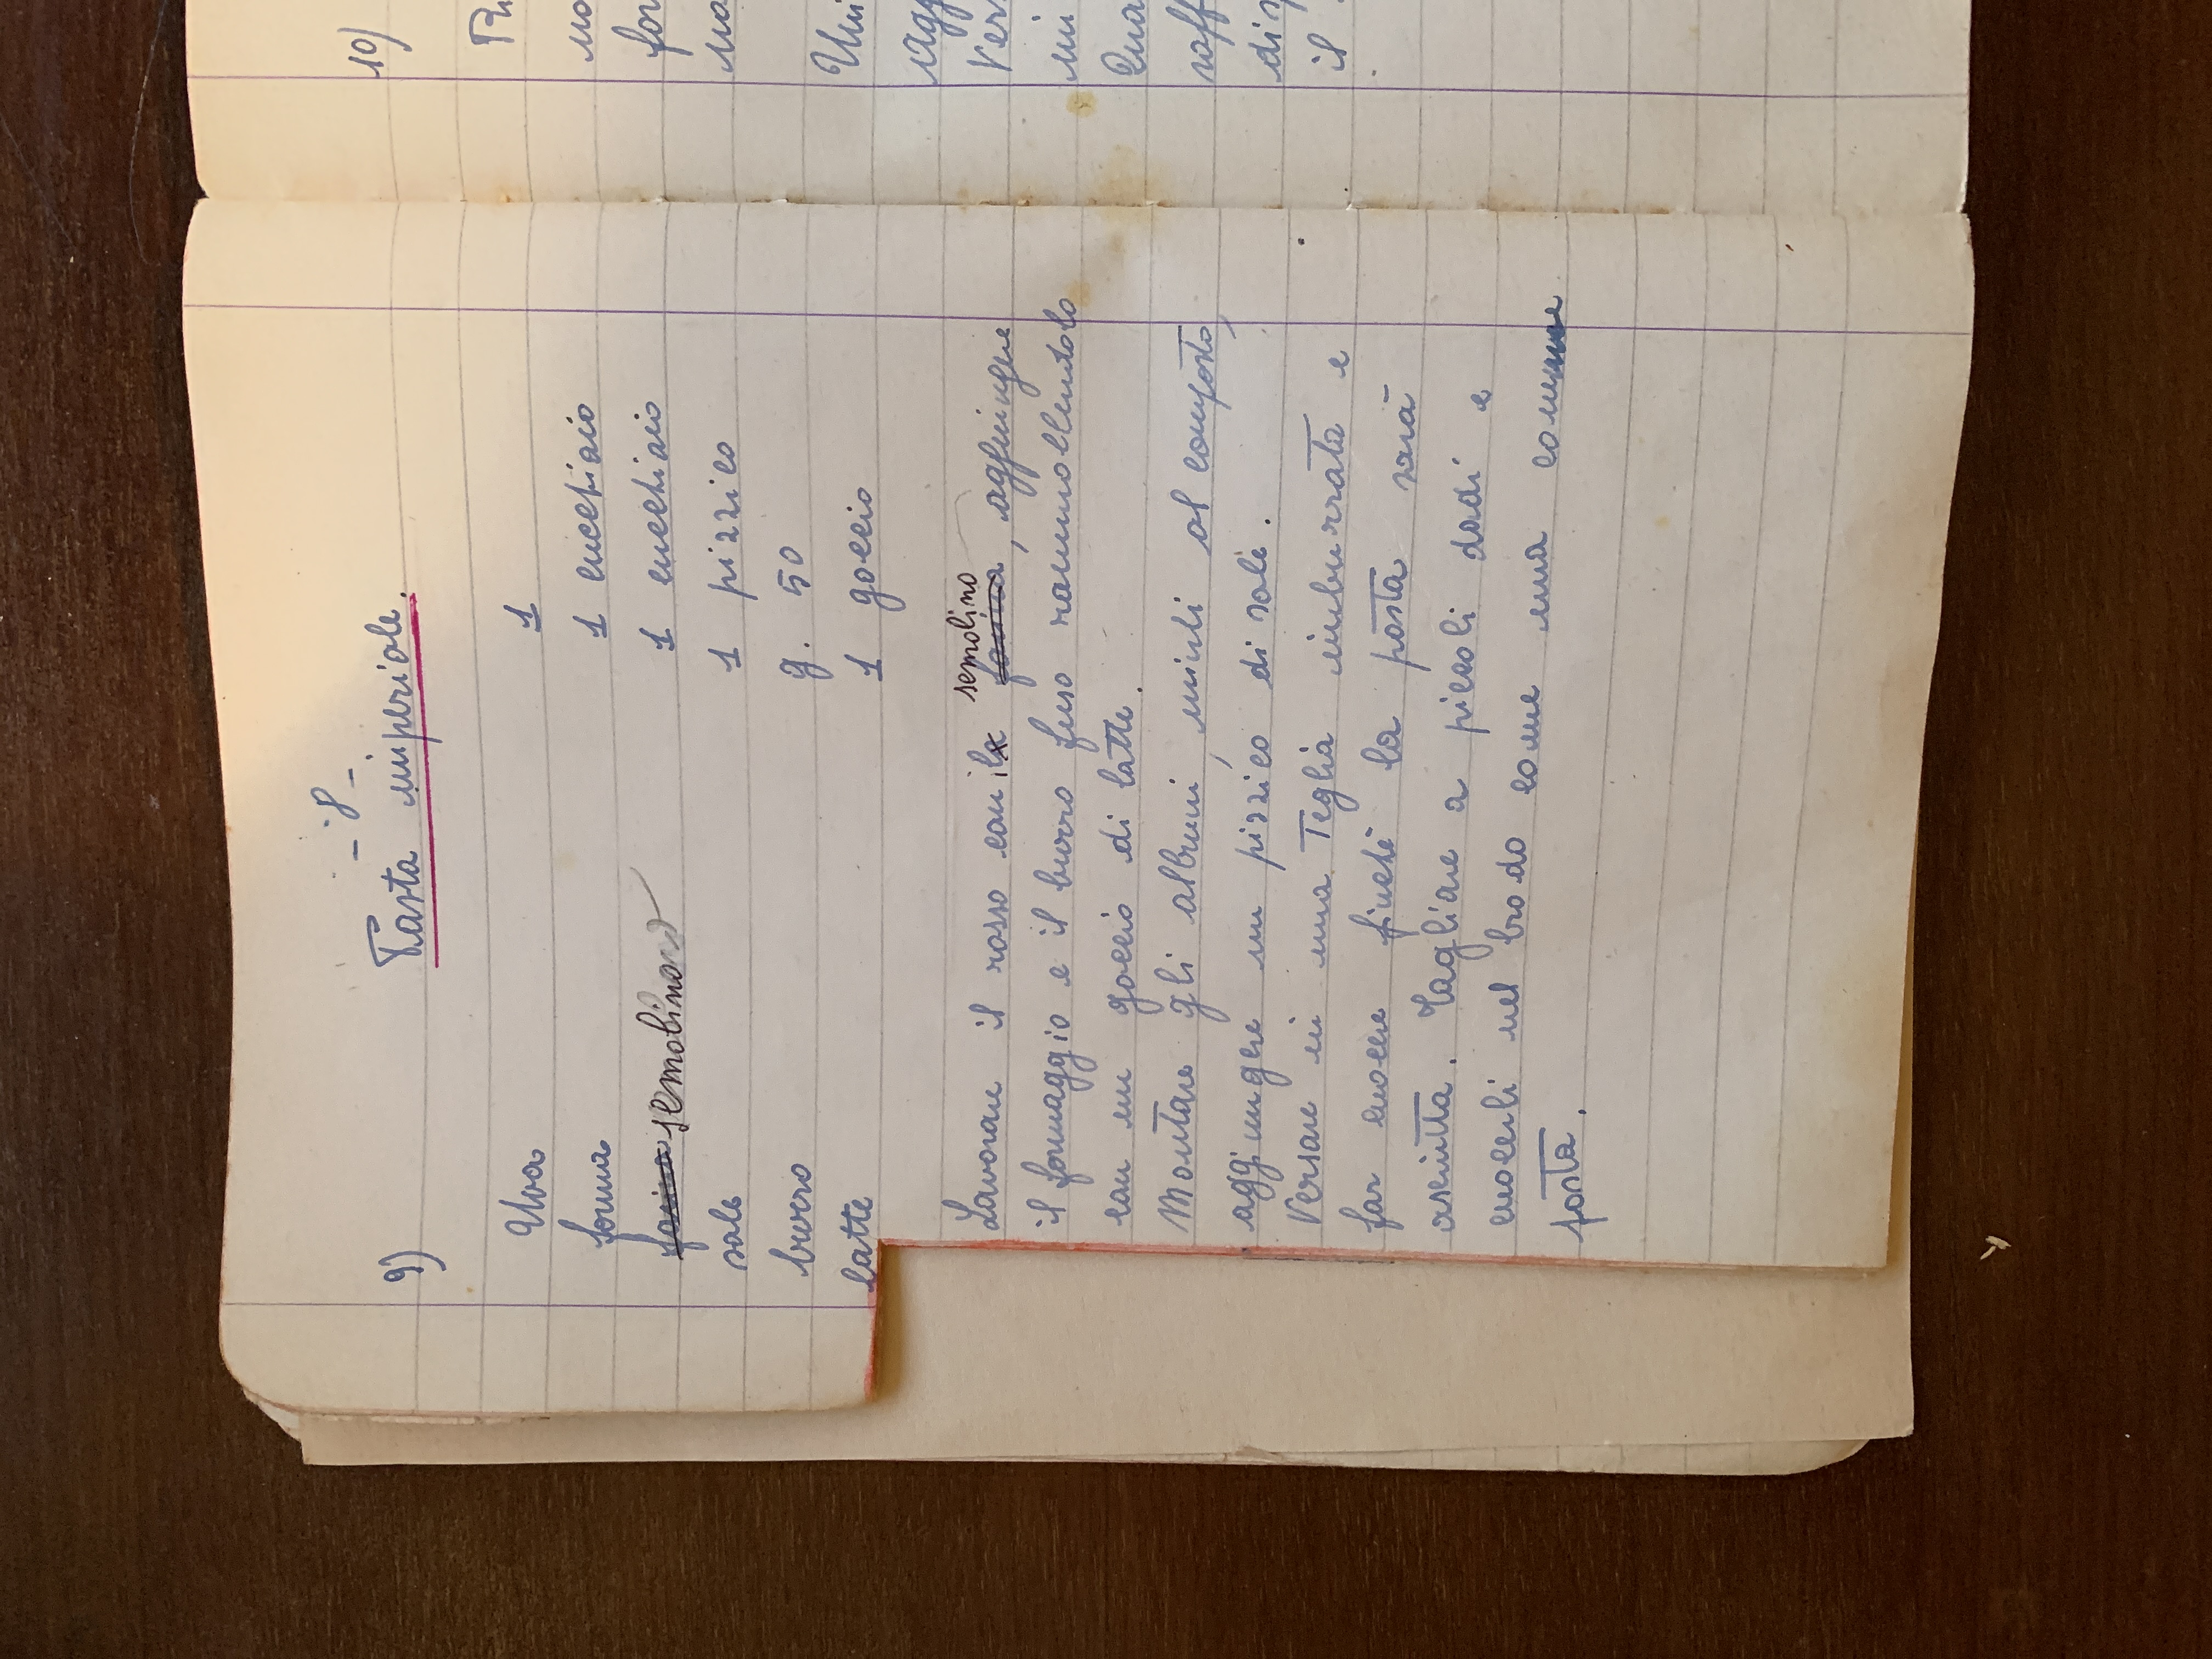 - 8 -
9) Pasta imperiale.
Uova 1
forma 1 cucchiaio
farina semolino 1 cucchiaio
sale 1 pizzico
burro g. 50
latte 1 goccio
semolino
Lavorare il rosso con il farina, aggiungere
il formaggio e il burro fuso rammollendolo
con un goccio di latte.
Montare gli albumi, unirli al composto,
aggiungere un pizzico di sale.
Versare in una Teglia imburrata e
far cuocere finché la pasta sarà
asciutta. Tagliare a piccoli dadi e
cuocerli nel brodo come una comune
pasta.
10)
Uni
agg
Vers
in
Qua
raff
il